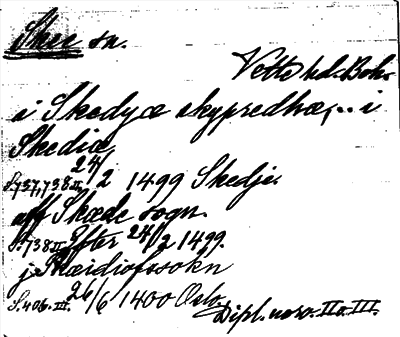 Skee sn.
Vette hd. Boh.
i Skedyæ skypredhæ, .. i
Skediæ
S.737,738 II 24/2 1499 Skedje.
aff Skæde sogn.
S.738 II Efter 24/2 1499.
j Skæidiofssokn
S.406. III. 26/6 1400 Oslo.
Dipl. norv. II o. III.